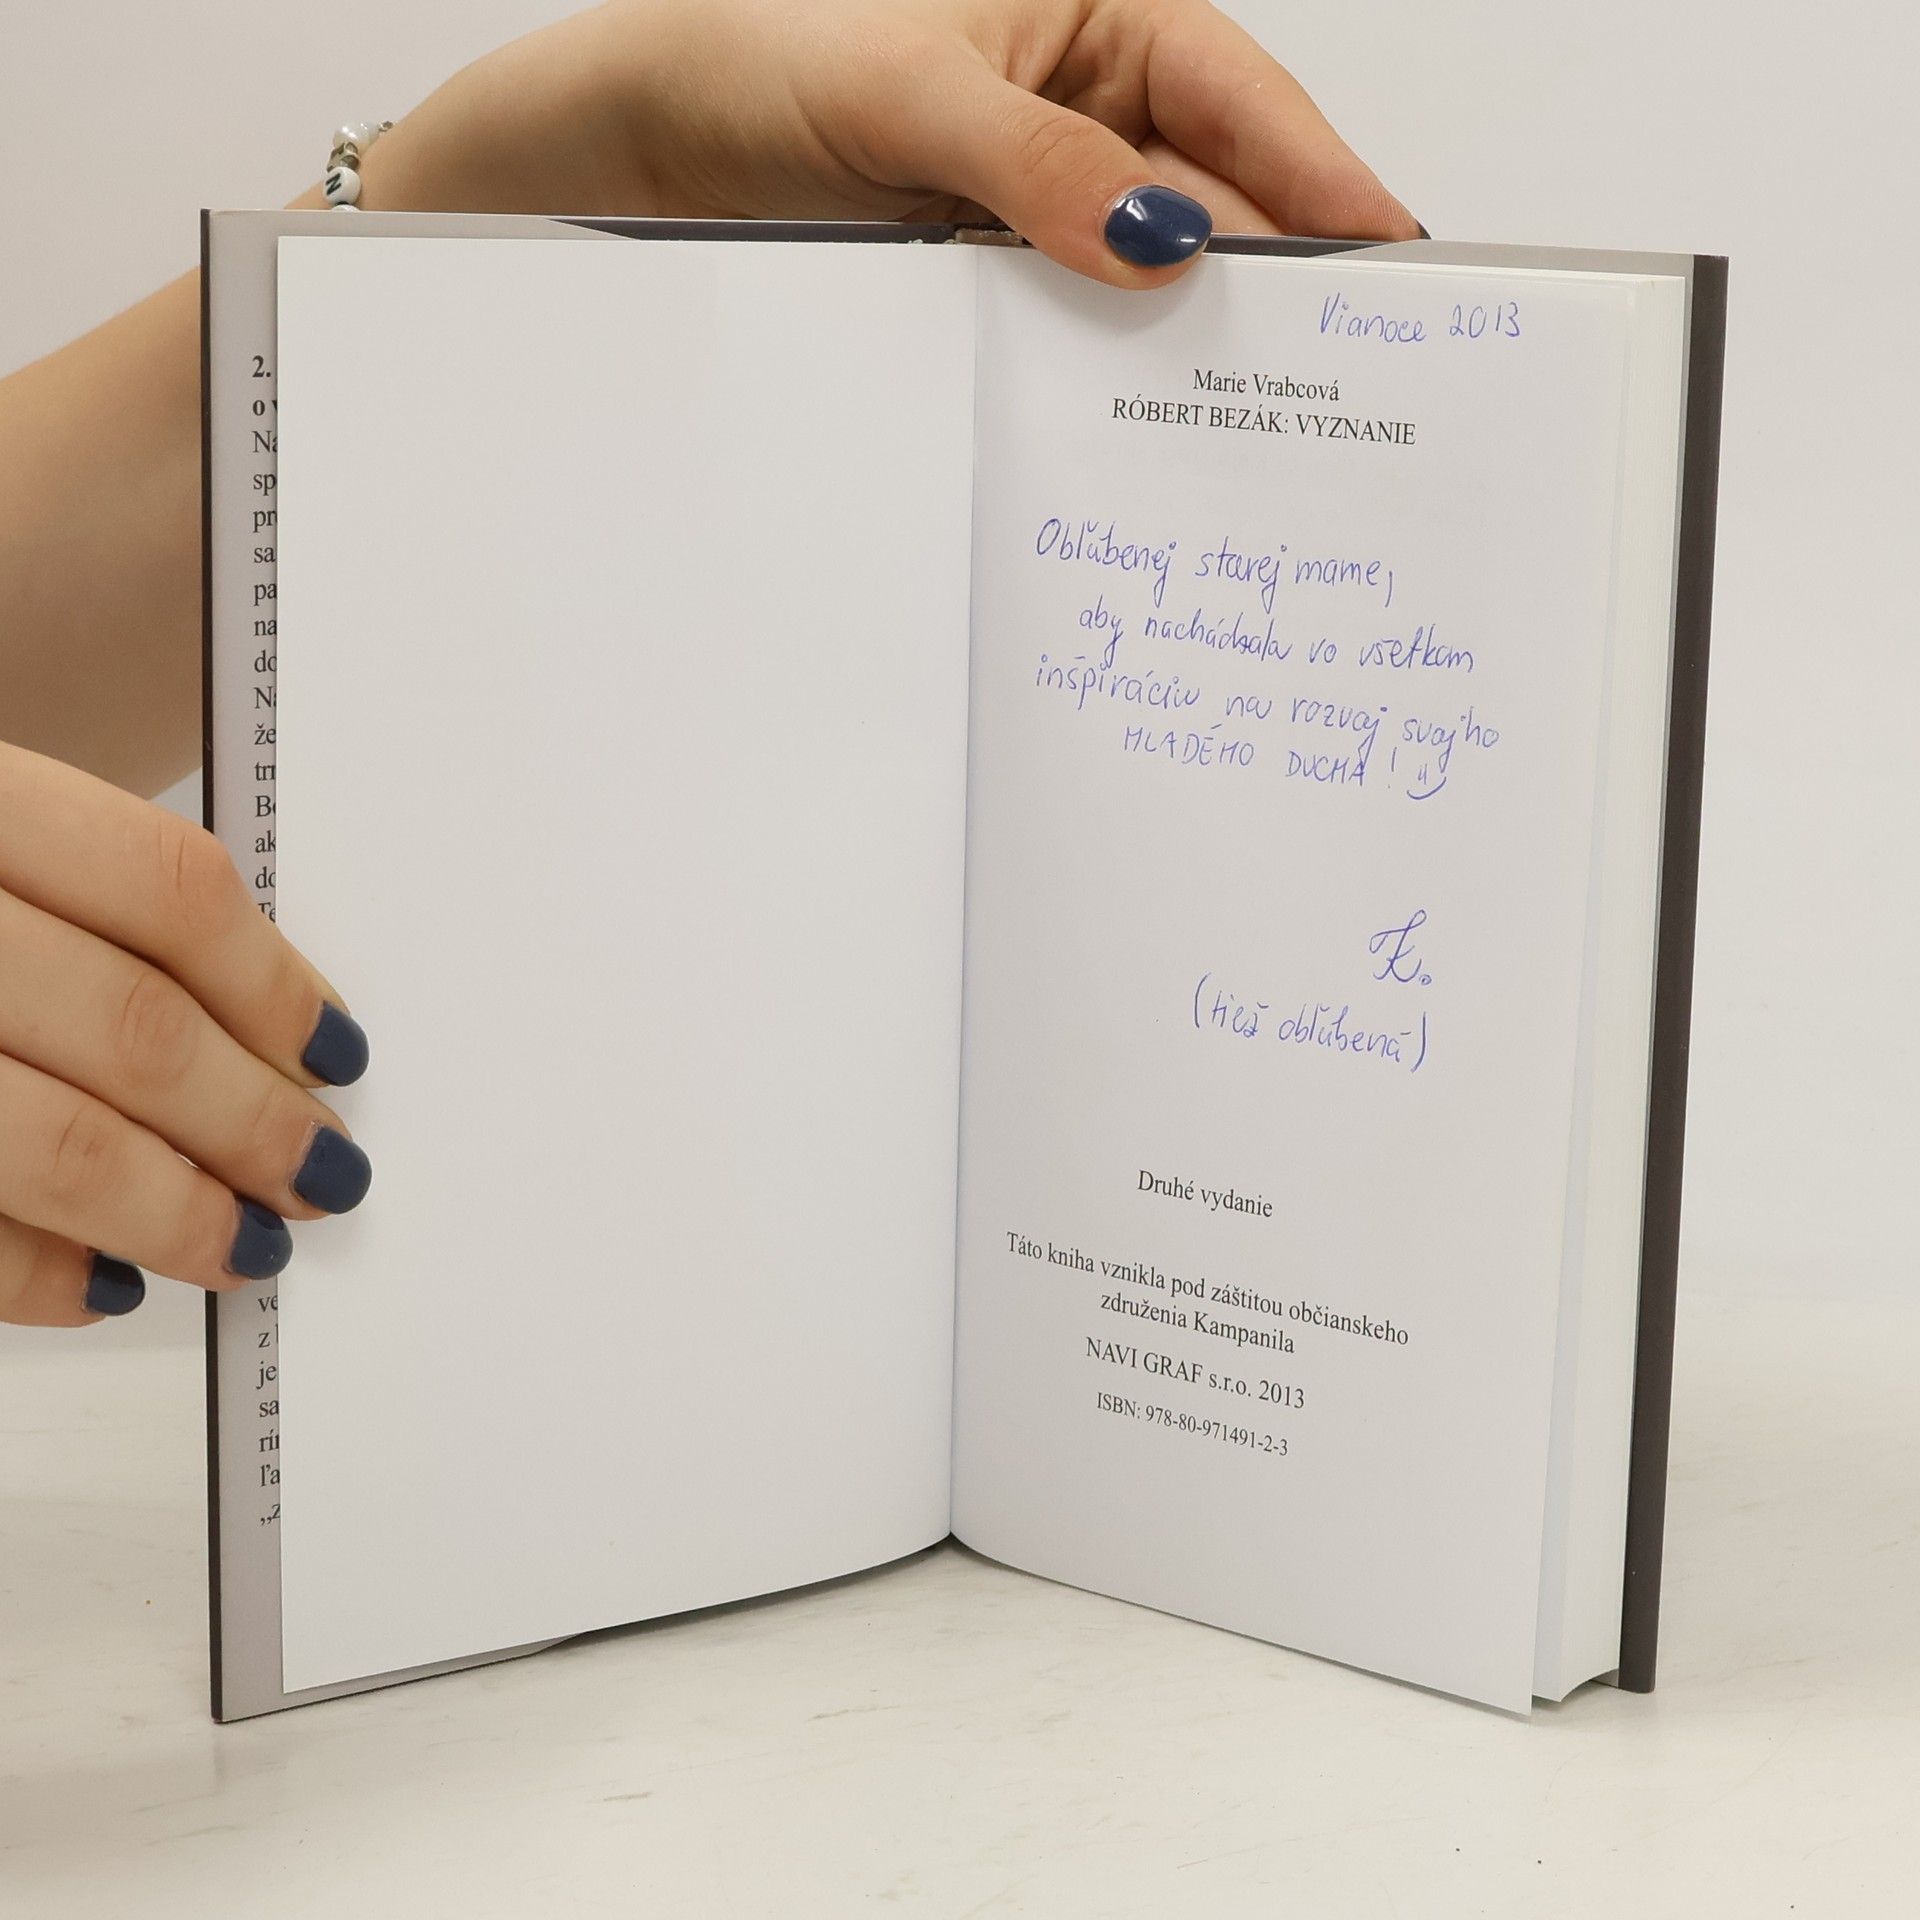 2.
o v
Na
sp
pr
sa
pa
na
do
Na
že
trn
Bo
ak
do
Te
ve
z
je
sa
rín
ľa
„z
Vianoce 2013
Marie Vrabcová
RÓBERT BEZÁK: VYZNANIE
Obľúbenej starej mame,
aby nachádzala vo všetkom
inšpiráciu na rozvoj svojho
MLADÉHO DUCHA!
K.
(tiež obľúbená)
Druhé vydanie
Táto kniha vznikla pod záštitou občianskeho
združenia Kampanila
NAVI GRAF s.r.o. 2013
ISBN: 978-80-971491-2-3
N